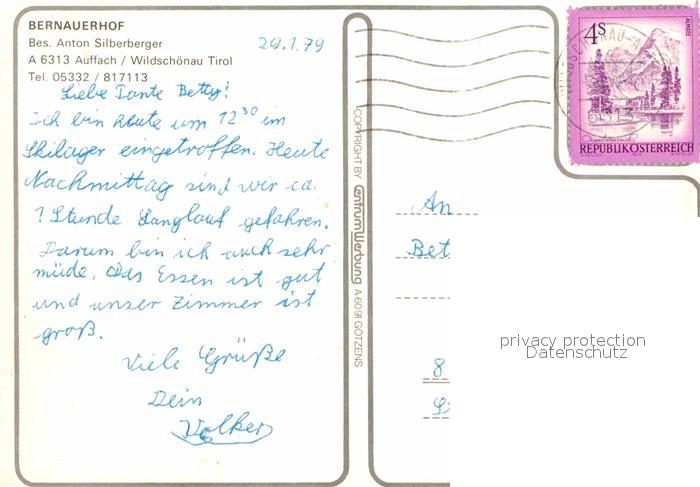 BERNAUERHOF
Bes. Anton Silberberger
A 6313 Auffach / Wildschönau Tirol
Tel. 05332 / 817113
29.1.79
Liebe Tante Betty!
Ich bin heute um 12³⁰ im
Skilager eingetroffen. Heute
Nachmittag sind wir ca.
1 Stunde Langlauf gefahren.
Darum bin ich auch sehr
müde. Das Essen ist gut
und unser Zimmer ist
groß.
Viele Grüße
Dein
Volker
COPYRIGHT BY CentrumWerbung A 6091 GÖTZENS
4S
ALMSEE
REPUBLIK ÖSTERREICH
6313
An
Bet
8
privacy protection
Datenschutz